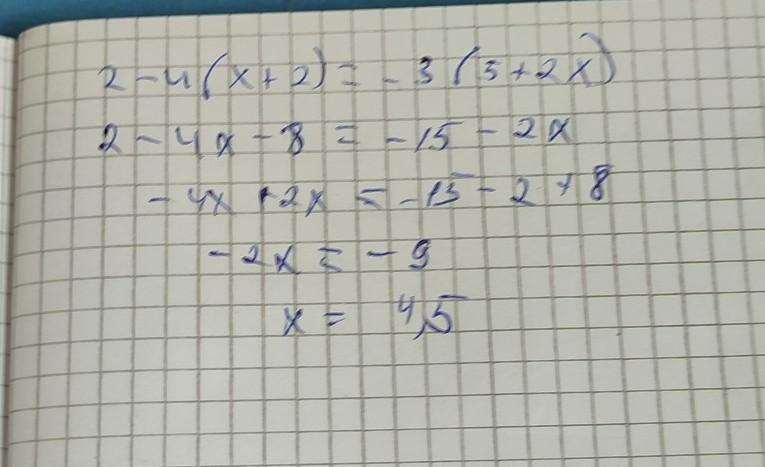 2 - 4(x + 2) = - 3 (5 + 2x)
2 - 4x - 8 = - 15 - 2x
- 4x + 2x = - 15 - 2 + 8
- 2x = - 9
x = 4,5